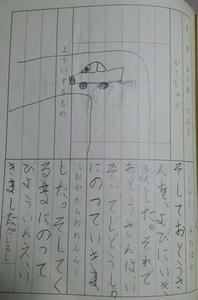 よう日 てんき
よういするもの
そしておとうさ
んを、よびにいき
ました。それで
おとうさんは、い
そいでじどうしゃ
にのっていきま
した。そしてく
るまにのって
びょういんえい
きました
おやからのれんらく
しるし